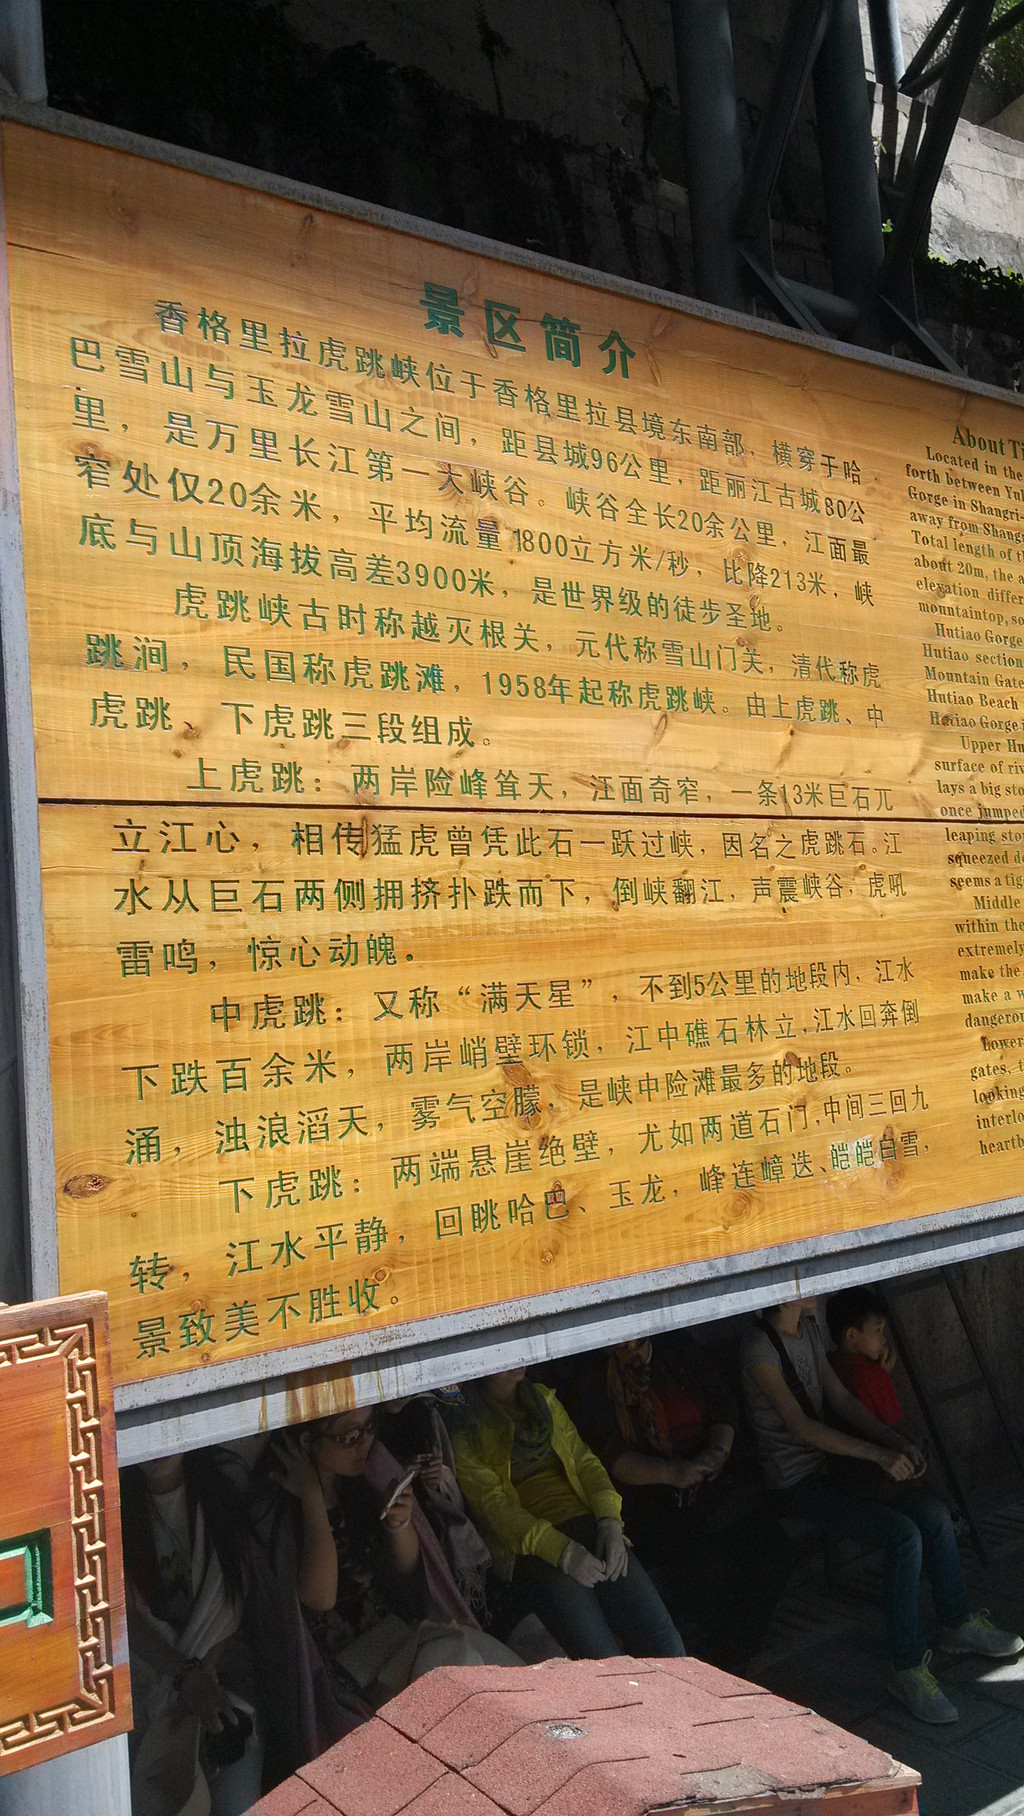 景区简介
香格里拉虎跳峡位于香格里拉县境东南部，横穿于哈
巴雪山与玉龙雪山之间，距县城96公里，距丽江古城80公
里，是万里长江第一大峡谷。峡谷全长20余公里，江面最
窄处仅20余米，平均流量1800立方米/秒，比降213米，峡
底与山顶海拔高差3900米，是世界级的徒步圣地。
虎跳峡古时称越灭根关，元代称雪山门关，清代称虎
跳涧，民国称虎跳滩，1958年起称虎跳峡。由上虎跳、中
虎跳、下虎跳三段组成。
上虎跳：两岸险峰耸天，江面奇窄，一条13米巨石兀
立江心，相传猛虎曾凭此石一跃过峡，因名之虎跳石。江
水从巨石两侧拥挤扑跌而下，倒峡翻江，声震峡谷，虎吼
雷鸣，惊心动魄。
中虎跳：又称“满天星”，不到5公里的地段内，江水
下跌百余米，两岸峭壁环锁，江中礁石林立，江水回奔倒
涌，浊浪滔天，雾气空朦，是峡中险滩最多的地段。
下虎跳：两端悬崖绝壁，尤如两道石门，中间三回九
转，江水平静，回眺哈巴、玉龙，峰连嶂迭、皑皑白雪，
景致美不胜收。
About
Located in the
forth between
Gorge in
away from
Total length of
about 20m, the
elevation
mountaintop,
Hutiao Gorge
Hutiao section
Mountain Gate
Hutiao Beach
Hutiao Gorge
Upper
surface of
lays a big
once jumped
leaping
squeezed
seems a
Middle
within the
extremely
make the
make a
Lower
gates,
looking